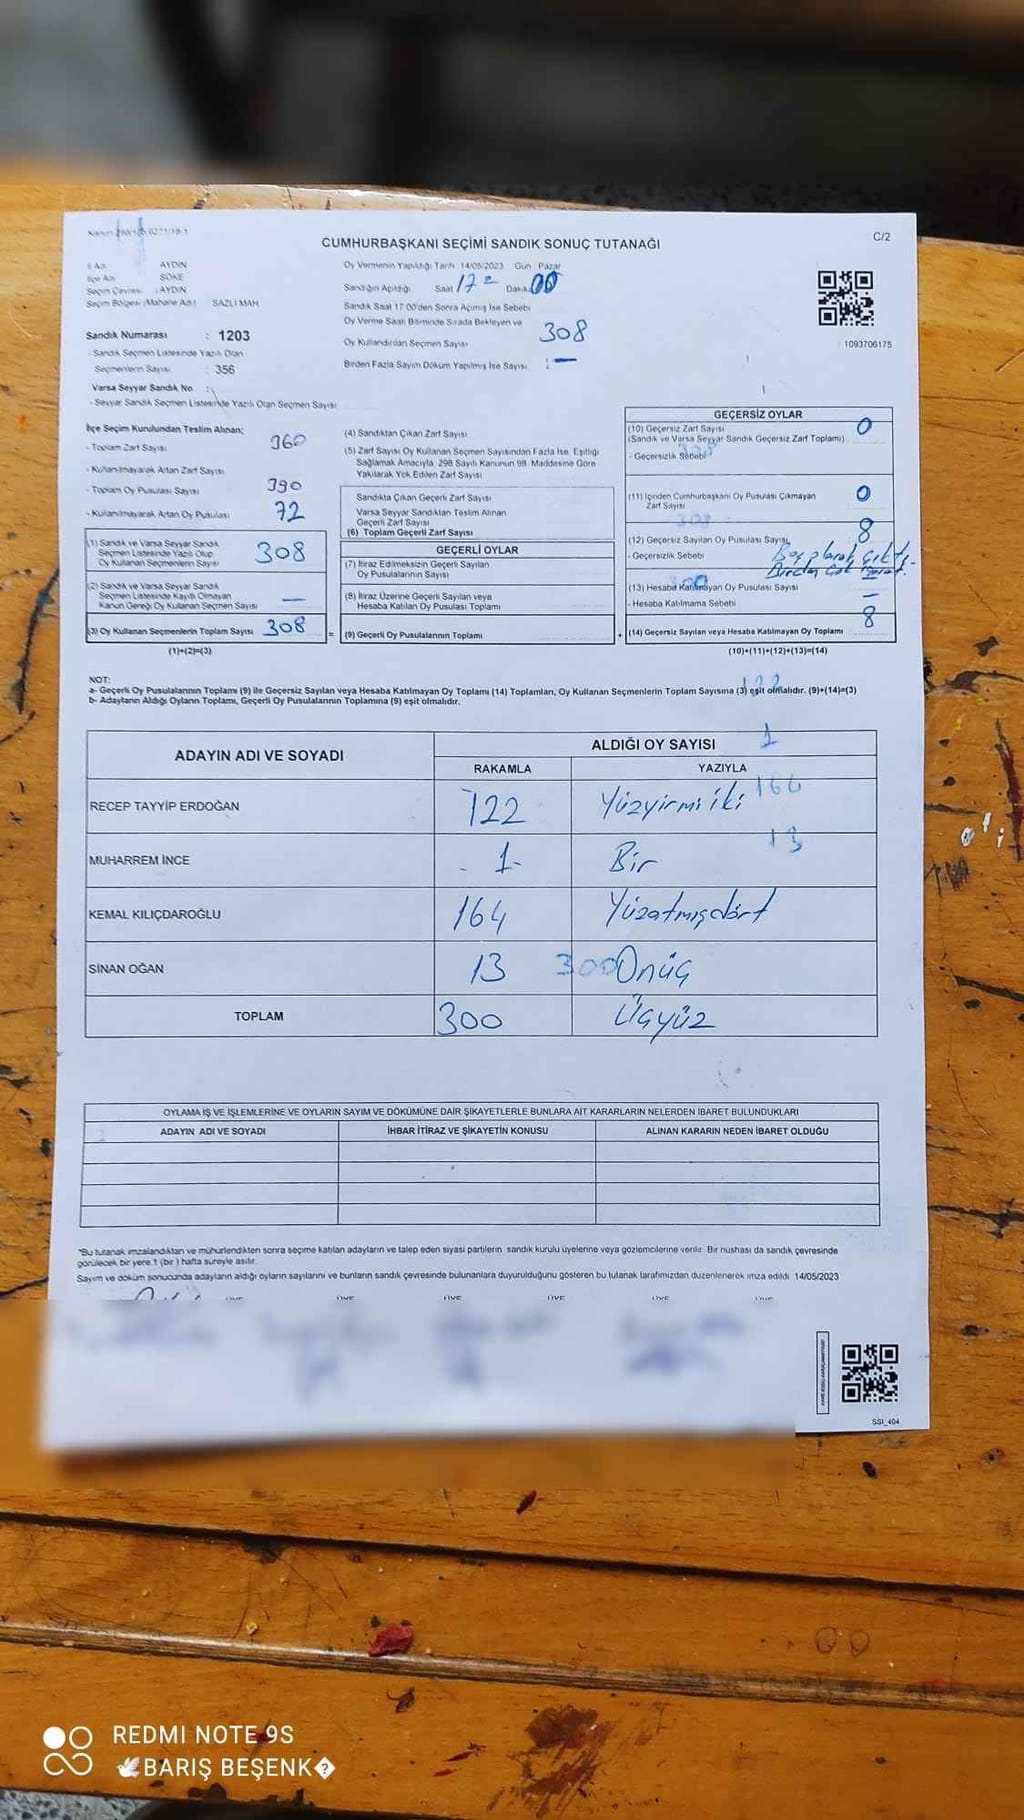 CUMHURBAŞKANI SEÇİMİ SANDIK SONUÇ TUTANAĞI
C/2
İl Adı : AYDIN
İlçe Adı : SÖKE
Seçim Çevresi : AYDIN
Seçim Bölgesi (Mahalle Adı) : SAZLI MAH.
Sandık Numarası : 1203
- Sandık Seçmen Listesinde Yazılı Olan
Seçmenlerin Sayısı : 356
Varsa Seyyar Sandık No :
- Seyyar Sandık Seçmen Listesinde Yazılı Olan Seçmen Sayısı
Oy Vermenin Yapıldığı Tarih 14/05/2023 Gün Pazar
Sandığın Açıldığı Saat 17 Dakika 00
Sandık Saat 17.00'den Sonra Açılmış İse Sebebi
Oy Verme Saati Bitiminde Sırada Bekleyen ve
Oy Kullandırılan Seçmen Sayısı 308
Birden Fazla Sayım Döküm Yapılmış İse Sayısı : —
1093706175
İlçe Seçim Kurulundan Teslim Alınan;
- Toplam Zarf Sayısı 360
- Kullanılmayarak Artan Zarf Sayısı
- Toplam Oy Pusulası Sayısı 390
- Kullanılmayarak Artan Oy Pusulası 72
(1) Sandık ve Varsa Seyyar Sandık
Seçmen Listesinde Yazılı Olup
Oy Kullanan Seçmenlerin Sayısı 308
(2) Sandık ve Varsa Seyyar Sandık
Seçmen Listesinde Kayıtlı Olmayan
Kanun Gereği Oy Kullanan Seçmen Sayısı —
(3) Oy Kullanan Seçmenlerin Toplam Sayısı 308
(1)+(2)=(3)
(4) Sandıktan Çıkan Zarf Sayısı
(5) Zarf Sayısı Oy Kullanan Seçmen Sayısından Fazla İse, Eşitliği
Sağlamak Amacıyla, 298 Sayılı Kanunun 98. Maddesine Göre
Yakılarak Yok Edilen Zarf Sayısı
Sandıkta Çıkan Geçerli Zarf Sayısı
Varsa Seyyar Sandıktan Teslim Alınan
Geçerli Zarf Sayısı
(6) Toplam Geçerli Zarf Sayısı
GEÇERLİ OYLAR
(7) İtiraz Edilmeksizin Geçerli Sayılan
Oy Pusulalarının Sayısı
(8) İtiraz Üzerine Geçerli Sayılan veya
Hesaba Katılan Oy Pusulası Toplamı
= (9) Geçerli Oy Pusulalarının Toplamı +
GEÇERSİZ OYLAR
(10) Geçersiz Zarf Sayısı 0
(Sandık ve Varsa Seyyar Sandık Geçersiz Zarf Toplamı)
- Geçersizlik Sebebi
(11) İçinden Cumhurbaşkanı Oy Pusulası Çıkmayan 0
Zarf Sayısı
(12) Geçersiz Sayılan Oy Pusulası Sayısı 8
- Geçersizlik Sebebi Boş olarak çıktı
(13) Hesaba Katılmayan Oy Pusulası Sayısı —
- Hesaba Katılmama Sebebi
(14) Geçersiz Sayılan veya Hesaba Katılmayan Oy Toplamı 8
(10)+(11)+(12)+(13)=(14)
NOT:
a- Geçerli Oy Pusulalarının Toplamı (9) ile Geçersiz Sayılan veya Hesaba Katılmayan Oy Toplamı (14) Toplamları, Oy Kullanan Seçmenlerin Toplam Sayısına (3) eşit olmalıdır. (9)+(14)=(3)
b- Adayların Aldığı Oyların Toplamı, Geçerli Oy Pusulalarının Toplamına (9) eşit olmalıdır.
ADAYIN ADI VE SOYADI
ALDIĞI OY SAYISI
RAKAMLA YAZIYLA
RECEP TAYYİP ERDOĞAN 122 Yüzyirmiiki
MUHARREM İNCE 1 Bir
KEMAL KILIÇDAROĞLU 164 Yüzatmışdört
SİNAN OĞAN 13 Onüç
TOPLAM 300 Üçyüz
OYLAMA İŞ VE İŞLEMLERİNE VE OYLARIN SAYIM VE DÖKÜMÜNE DAİR ŞİKAYETLERLE BUNLARA AİT KARARLARIN NELERDEN İBARET BULUNDUKLARI
ADAYIN ADI VE SOYADI İHBAR İTİRAZ VE ŞİKAYETİN KONUSU ALINAN KARARIN NEDEN İBARET OLDUĞU
"Bu tutanak imzalandıktan ve mühürlendikten sonra seçime katılan adayların ve talep eden siyasi partilerin sandık kurulu üyelerine veya gözlemcilerine verilir. Bir nüshası da sandık çevresinde
görülecek bir yere 1 (bir) hafta süreyle asılır.
Sayım ve döküm sonucunda adayların aldığı oyların sayılarını ve bunların sandık çevresinde bulunanlara duyurulduğunu gösteren bu tutanak tarafımızdan düzenlenerek imza edildi. 14/05/2023
SSI_404
REDMI NOTE 9S
🕊BARIŞ BEŞENK�